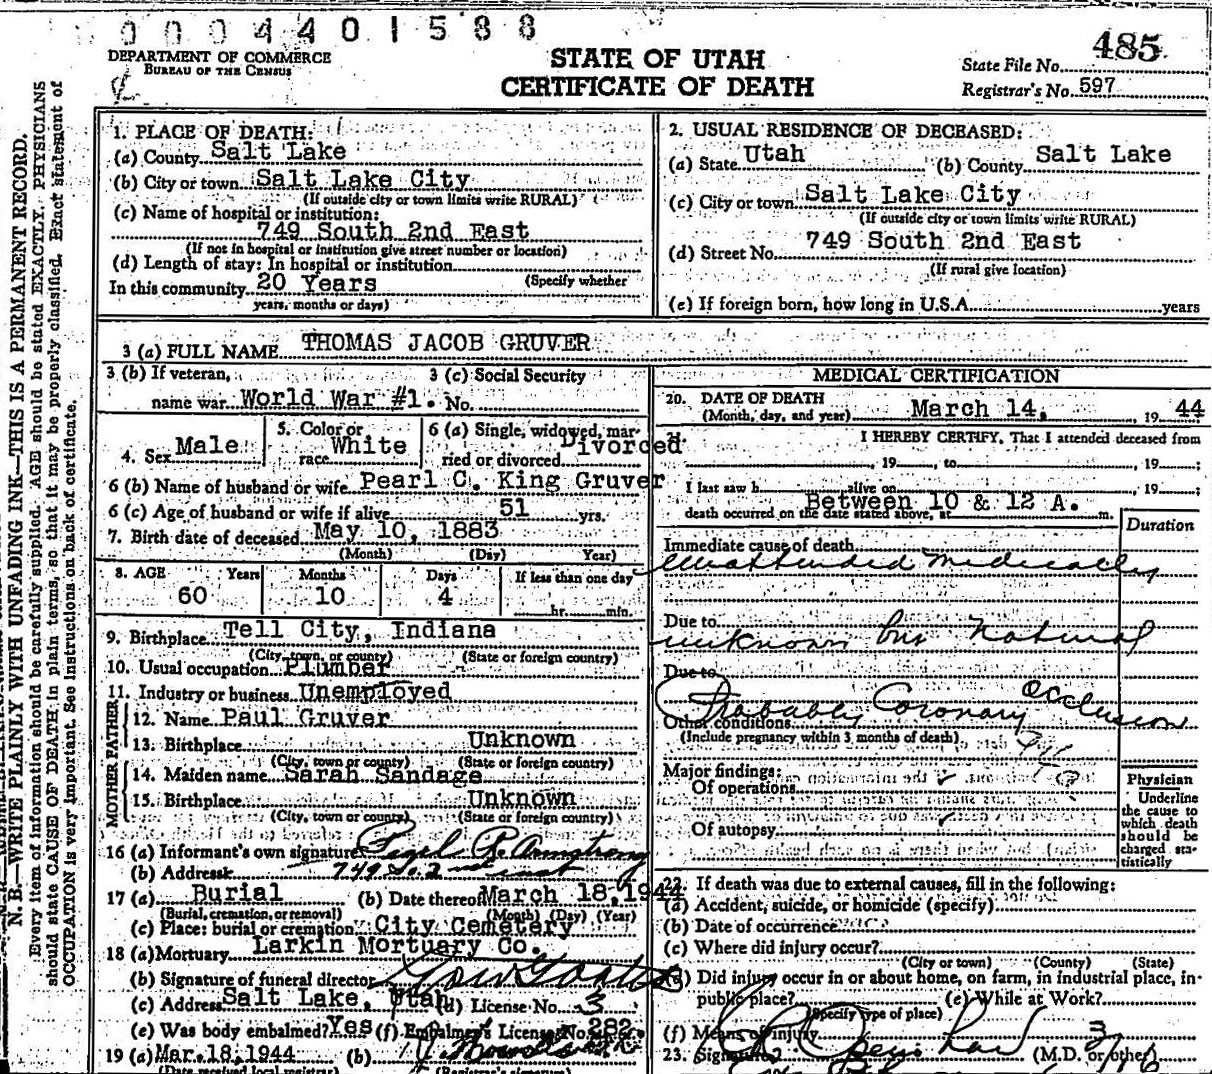 0004401588
DEPARTMENT OF COMMERCE
BUREAU OF THE CENSUS
STATE OF UTAH
CERTIFICATE OF DEATH
485
State File No.
Registrar's No. 597
N. B.—WRITE PLAINLY WITH UNFADING INK—THIS IS A PERMANENT RECORD.
Every item of information should be carefully supplied. AGE should be stated EXACTLY. PHYSICIANS
should state CAUSE OF DEATH in plain terms, so that it may be properly classified. Exact statement of
OCCUPATION is very important. See instructions on back of certificate.
1. PLACE OF DEATH:
(a) County Salt Lake
(b) City or town Salt Lake City
(If outside city or town limits write RURAL)
(c) Name of hospital or institution:
749 South 2nd East
(If not in hospital or institution give street number or location)
(d) Length of stay: In hospital or institution
(Specify whether
In this community 20 Years
years, months or days)
2. USUAL RESIDENCE OF DECEASED:
(a) State Utah (b) County Salt Lake
(c) City or town Salt Lake City
(If outside city or town limits write RURAL)
(d) Street No. 749 South 2nd East
(If rural give location)
(e) If foreign born, how long in U.S.A. years
3 (a) FULL NAME THOMAS JACOB GRUVER
3 (b) If veteran,
name war World War #1.
3 (c) Social Security
No.
4. Sex Male
5. Color or
race White
6 (a) Single, widowed, mar-
ried or divorced Divorced
6 (b) Name of husband or wife Pearl C. King Gruver
6 (c) Age of husband or wife if alive 51 yrs.
7. Birth date of deceased May 10, 1883
(Month) (Day) Year)
8. AGE Years Months Days If less than one day
60 10 4 hr. min.
9. Birthplace Tell City, Indiana
(City, town, or county) (State or foreign country)
10. Usual occupation Plumber
11. Industry or business Unemployed
FATHER
12. Name Paul Gruver
13. Birthplace Unknown
(City, town or county) (State or foreign country)
MOTHER
14. Maiden name Sarah Sandage
15. Birthplace Unknown
(City, town or county) (State or foreign country)
16 (a) Informant's own signature R. Armstrong
(b) Address 749 So. 2nd East
17 (a) Burial (b) Date thereof March 18, 1944
(Burial, cremation, or removal) (Month) (Day) (Year)
(c) Place: burial or cremation City Cemetery
18 (a) Mortuary Larkin Mortuary Co.
(b) Signature of funeral director
(c) Address Salt Lake, Utah (d) License No. 3
(e) Was body embalmed? Yes (f) Embalmer's License No. 282
19 (a) Mar. 18, 1944 (b)
(Date received local registrar) (Registrar's signature)
MEDICAL CERTIFICATION
20. DATE OF DEATH
(Month, day, and year) March 14, 19 44
I HEREBY CERTIFY, That I attended deceased from
, 19 , to , 19 ;
I last saw h alive on , 19 ;
death occurred on the date stated above, at Between 10 & 12 A. m.
Duration
Immediate cause of death
Unattended Medically
Due to
unknown but Natural
Due to
Probably Coronary Occlusion
Other conditions
(Include pregnancy within 3 months of death)
94
Major findings:
Of operations
Of autopsy
Physician
Underline
the cause to
which death
should be
charged sta-
tistically
22. If death was due to external causes, fill in the following:
(a) Accident, suicide, or homicide (specify)
(b) Date of occurrence
(c) Where did injury occur?
(City or town) (County) (State)
(d) Did injury occur in or about home, on farm, in industrial place, in
public place? (e) While at Work?
(Specify type of place)
(f) Means of injury
23. Signature (M.D. or other) 3/16